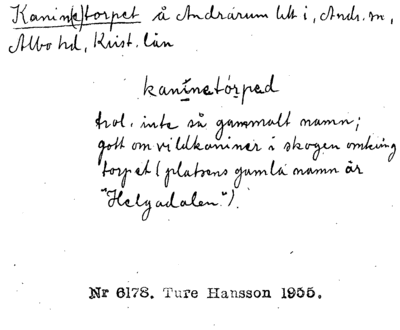 Kanin(e)torpet å Andrarum litt i, Ands. sn,
Albo hd, Krist. län
kaninetórped
trol. inte så gammalt namn;
gott om vildkaniner i skogen omkring
torpet (platsens gamla namn är
"Helgadalen").
Nr 6178. Ture Hansson 1955.